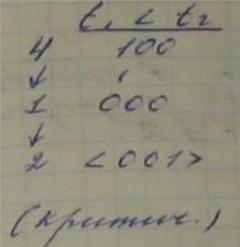 t₁ < t₂
4 100
↓
1 000
↓
2 <001>
(критич.)